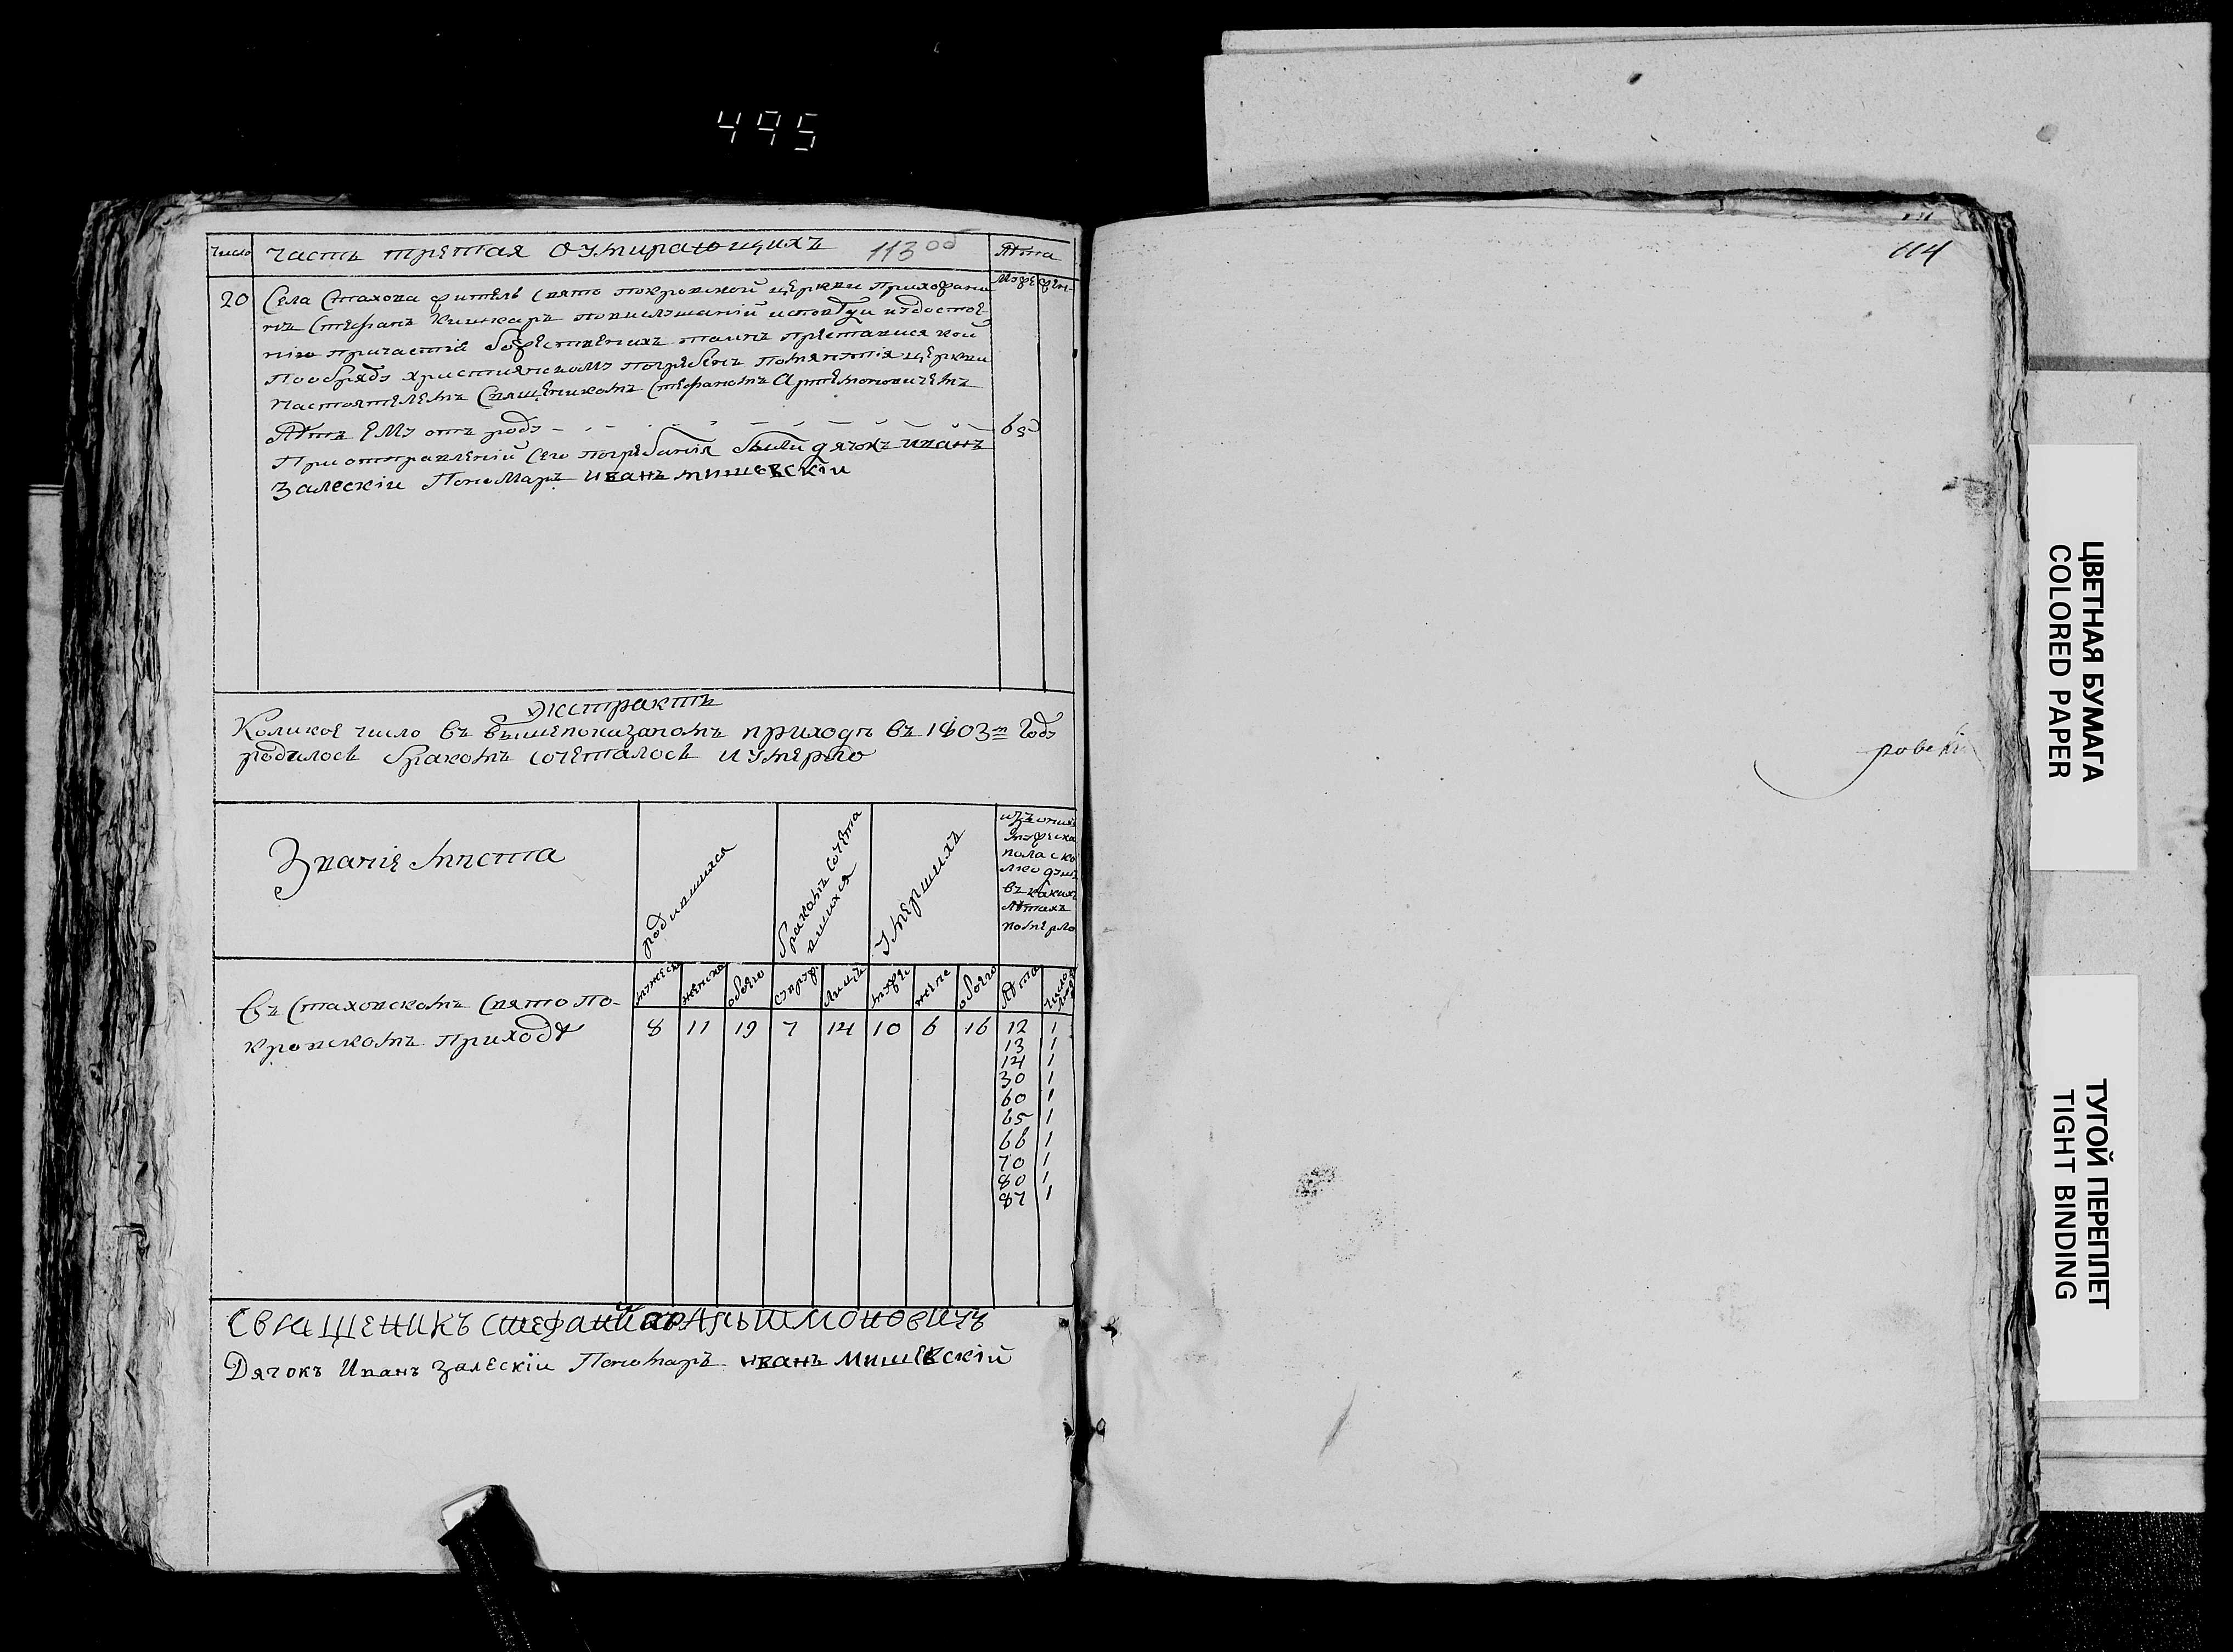 495
Число Часть третая оумирающихъ 113 об Лѣта
Муже жен
20 Села Стахова житель Свято покровской церкви прихожани
нъ Стефанъ по исповѣди и удостое-
нію причастія божественихъ таинъ преставися кой
по обряду християнскому погребенъ церкви
настоятелемъ Священикомъ Стефаномъ Артемоновичемъ
Лѣтъ ему отъ роду 65
При отправленій сего погребенія были дячокъ иванъ
Залескій Пономаръ иванъ мишевскій
Экстрактъ
Коликое число въ вышепоказаномъ приходѣ въ 1803м году
родилось бракомъ сочеталось и умерло
Званіе мѣста
родившихся
бракомъ сочета
вшихся
Умершихъ
изъ онихъ
мужеска
пола ско
лко душъ
въ какихъ
лѣтахъ
померло
мужеск женска обоего супруж. лицъ муже жене обоего Лѣта число
Въ Стаховскомъ Свято по-
кровскомъ приходѣ
8 11 19 7 14 10 6 16 12 1
13 1
14 1
30 1
60 1
65 1
66 1
70 1
80 1
87 1
Дячокъ Иванъ Залескій Пономаръ иванъ мишевскій
114
ЦВЕТНАЯ БУМАГА
COLORED PAPER
ТУГОЙ ПЕРЕПЛЕТ
TIGHT BINDING